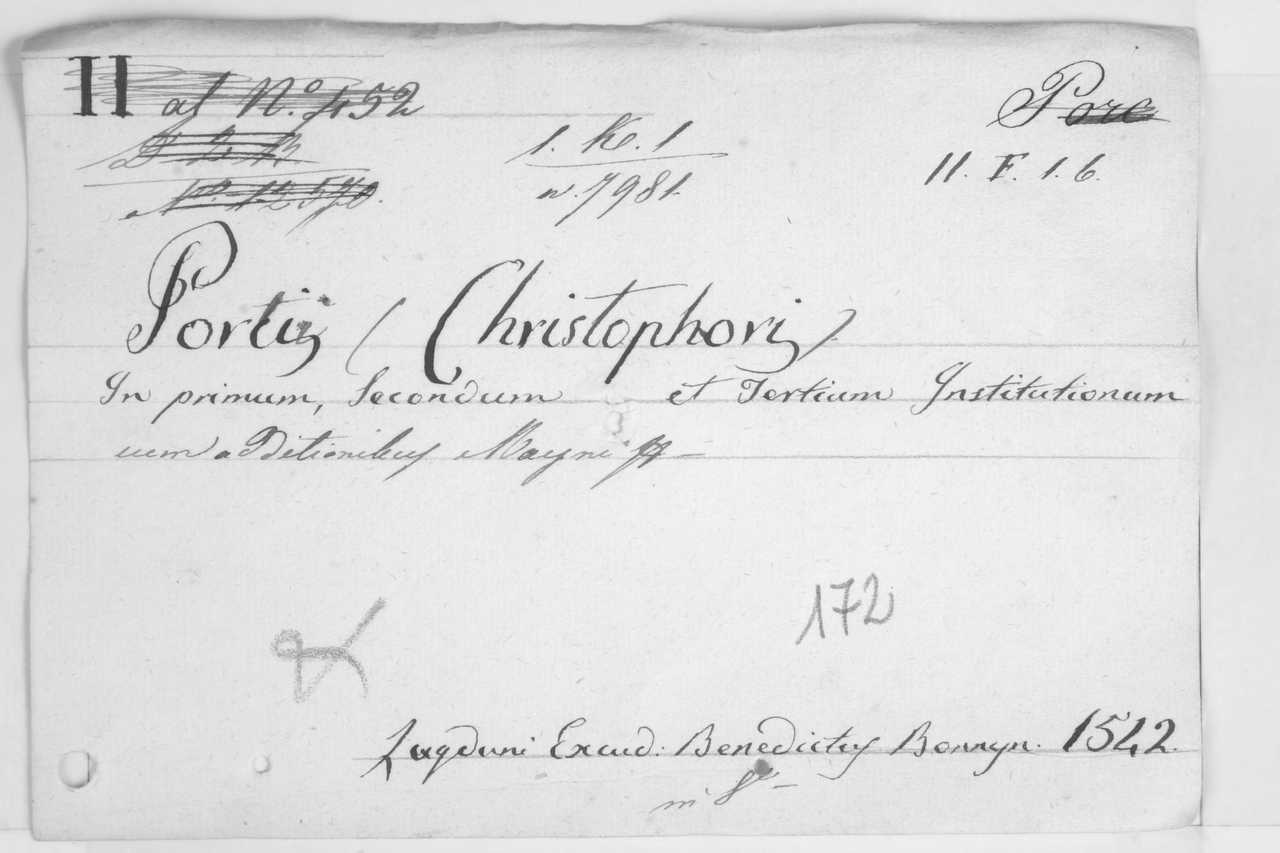 II ad No. 452
Porc
1. K. 1
II. F. 1. 6.
No. 12570.
n. 7981.
Portij (Christophori)
In primum, Secondum et Tertium Institutionum
cum additionibus Mayni
172
Lugduni Excud: Benedictus Bonnyn. 1542.
in 8º